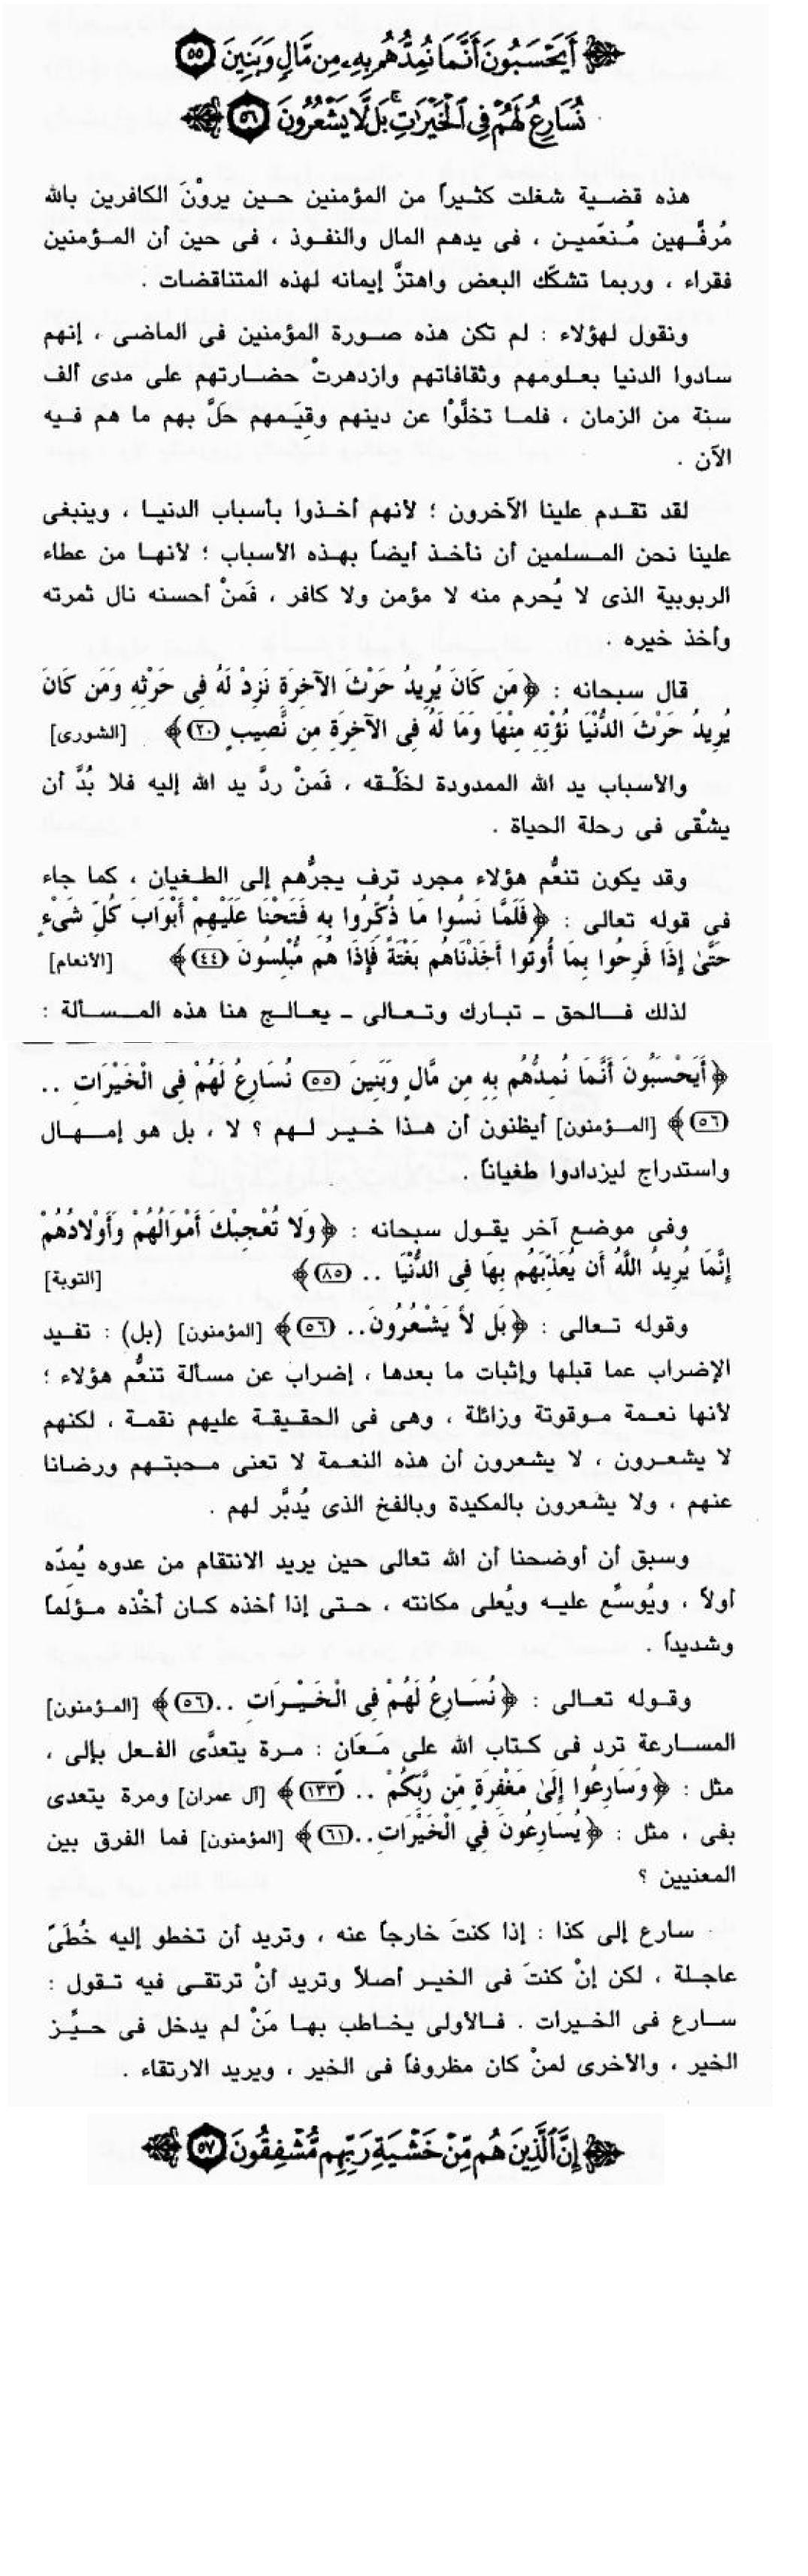 أَيَحْسَبُونَ أَنَّمَا نُمِدُّهُم بِهِۦ مِن مَّالٍ وَبَنِينَ ٥٥
نُسَارِعُ لَهُمْ فِى ٱلْخَيْرَٰتِ ۚ بَل لَّا يَشْعُرُونَ ٥٦
هذه قضية شغلت كثيراً من المؤمنين حين يروْنَ الكافرين بالله
مُرفَّهين مُنعَّمين ، فى يدهم المال والنفوذ ، فى حين أن المؤمنين
فقراء ، وربما تشكّك البعض واهتزَّ إيمانه لهذه المتناقضات .
ونقول لهؤلاء : لم تكن هذه صورة المؤمنين فى الماضى ، إنهم
سادوا الدنيا بعلومهم وثقافاتهم وازدهرتْ حضارتهم على مدى ألف
سنة من الزمان ، فلما تخلَّوْا عن دينهم وقِيَمهم حَلَّ بهم ما هم فيه
الآن .
لقد تقدم علينا الآخرون ؛ لأنهم أخذوا بأسباب الدنيا ، وينبغى
علينا نحن المسلمين أن نأخذ أيضاً بهذه الأسباب ؛ لأنها من عطاء
الربوبية الذى لا يُحرم منه لا مؤمن ولا كافر ، فَمنْ أحسنه نال ثمرته
وأخذ خيره .
قال سبحانه : ﴿مَن كَانَ يُرِيدُ حَرْثَ الآخِرَةِ نَزِدْ لَهُ فِى حَرْثِهِ وَمَن كَانَ
يُرِيدُ حَرْثَ الدُّنْيَا نُؤْتِهِ مِنْهَا وَمَا لَهُ فِى الآخِرَةِ مِن نَّصِيبٍ (٢٠)﴾ [الشورى]
والأسباب يد الله الممدودة لخَلْقه ، فَمنْ ردَّ يد الله إليه فلا بُدَّ أن
يشْقى فى رحلة الحياة .
وقد يكون تنعُّم هؤلاء مجرد ترف يجرُّهم إلى الطغيان ، كما جاء
فى قوله تعالى : ﴿فَلَمَّا نَسُوا مَا ذُكِّرُوا بِهِ فَتَحْنَا عَلَيْهِمْ أَبْوَابَ كُلِّ شَىْءٍ
حَتَّىٰ إِذَا فَرِحُوا بِمَا أُوتُوا أَخَذْنَاهُم بَغْتَةً فَإِذَا هُم مُّبْلِسُونَ (٤٤)﴾ [الأنعام]
لذلك فالحق - تبارك وتعالى - يعالج هنا هذه المسألة :
﴿أَيَحْسَبُونَ أَنَّمَا نُمِدُّهُم بِهِ مِن مَّالٍ وَبَنِينَ (٥٥) نُسَارِعُ لَهُمْ فِى الْخَيْرَاتِ ..
(٥٦)﴾ [المؤمنون] أيظنون أن هذا خير لهم ؟ لا ، بل هو إمهال
واستدراج ليزدادوا طغياناً .
وفى موضع آخر يقول سبحانه : ﴿وَلَا تُعْجِبْكَ أَمْوَالُهُمْ وَأَوْلَادُهُمْ
إِنَّمَا يُرِيدُ اللَّهُ أَن يُعَذِّبَهُم بِهَا فِى الدُّنْيَا .. (٨٥)﴾ [التوبة]
وقوله تعالى : ﴿بَل لاَّ يَشْعُرُونَ.. (٥٦)﴾ [المؤمنون] (بل) : تفيد
الإضراب عما قبلها وإثبات ما بعدها ، إضراب عن مسألة تنعُّم هؤلاء ؛
لأنها نعمة موقوتة وزائلة ، وهى فى الحقيقة عليهم نقمة ، لكنهم
لا يشعرون ، لا يشعرون أن هذه النعمة لا تعنى محبتهم ورضانا
عنهم ، ولا يشعرون بالمكيدة وبالفخ الذى يُدبَّر لهم .
وسبق أن أوضحنا أن الله تعالى حين يريد الانتقام من عدوه يُمِدّه
أولاً ، ويُوسِّع عليه ويُعلى مكانته ، حتى إذا أخذه كان أخْذه مؤلماً
وشديداً .
وقوله تعالى : ﴿نُسَارِعُ لَهُمْ فِى الْخَيْرَاتِ ..(٥٦)﴾ [المؤمنون]
المسارعة ترد فى كتاب الله على مَعَانٍ : مرة يتعدَّى الفعل بإلى ،
مثل : ﴿وَسَارِعُوا إِلَىٰ مَغْفِرَةٍ مِّن رَّبِّكُمْ .. (١٣٣)﴾ [آل عمران] ومرة يتعدى
بفى ، مثل : ﴿يُسَارِعُونَ فِي الْخَيْرَاتِ..(٦١)﴾ [المؤمنون] فما الفرق بين
المعنيين ؟
سارع إلى كذا : إذا كنتَ خارجاً عنه ، وتريد أن تخطو إليه خُطىً
عاجلة ، لكن إنْ كنتَ فى الخير أصلاً وتريد أنْ ترتقى فيه تقول :
سارع فى الخيرات . فالأولى يخاطب بها مَنْ لم يدخل فى حيِّز
الخير ، والأخرى لمنْ كان مظروفاً فى الخير ، ويريد الارتقاء .
إِنَّ ٱلَّذِينَ هُم مِّنْ خَشْيَةِ رَبِّهِم مُّشْفِقُونَ ٥٧